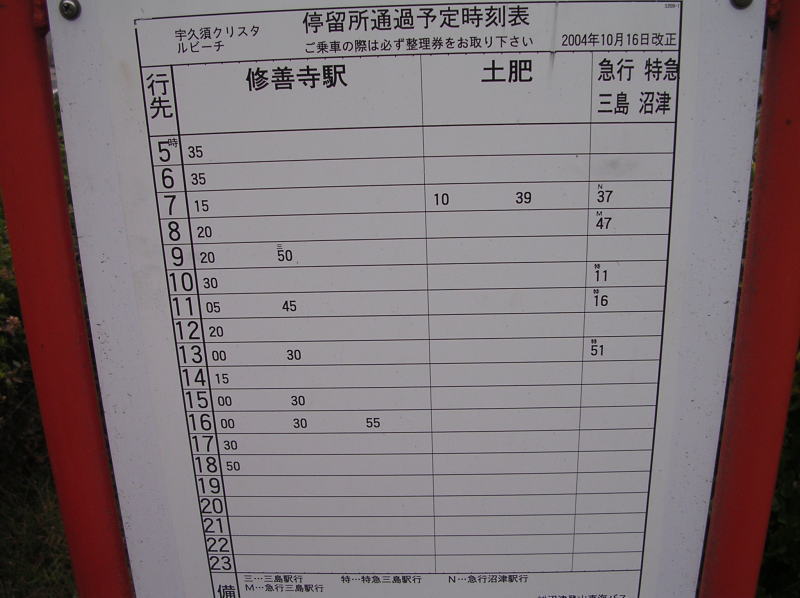 宇久須クリスタ
ルビーチ
停留所通過予定時刻表
ご乗車の際は必ず整理券をお取り下さい
2004年10月16日改正
行先 修善寺駅 土肥 急行 特急
三島 沼津
5時 35
6 35
7 15 10 39 N37
8 20 M47
9 20 三50
10 30 特11
11 05 45 特16
12 20
13 00 30 特51
14 15
15 00 30
16 00 30 55
17 30
18 50
19
20
21
22
23
備 三…三島駅行 特…特急三島駅行 N…急行沼津駅行
M…急行三島駅行